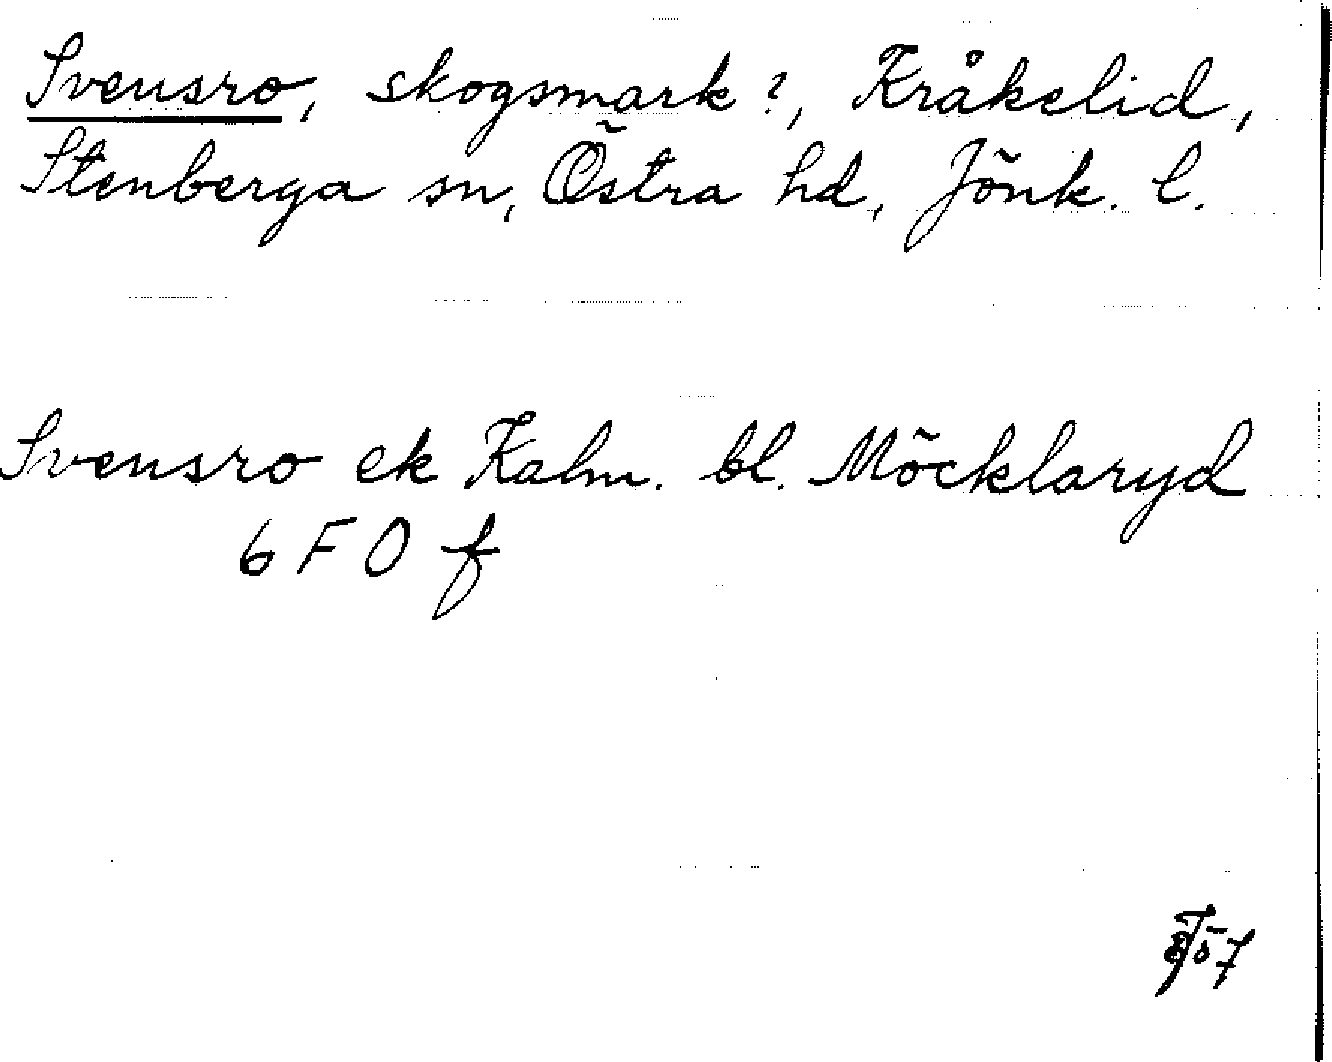 Svensro, skogsmark?, Kråkelid,
Stenberga sn, Östra hd, Jönk. l.
Svensro ek Kalm. bl. Möcklaryd
6 F O f